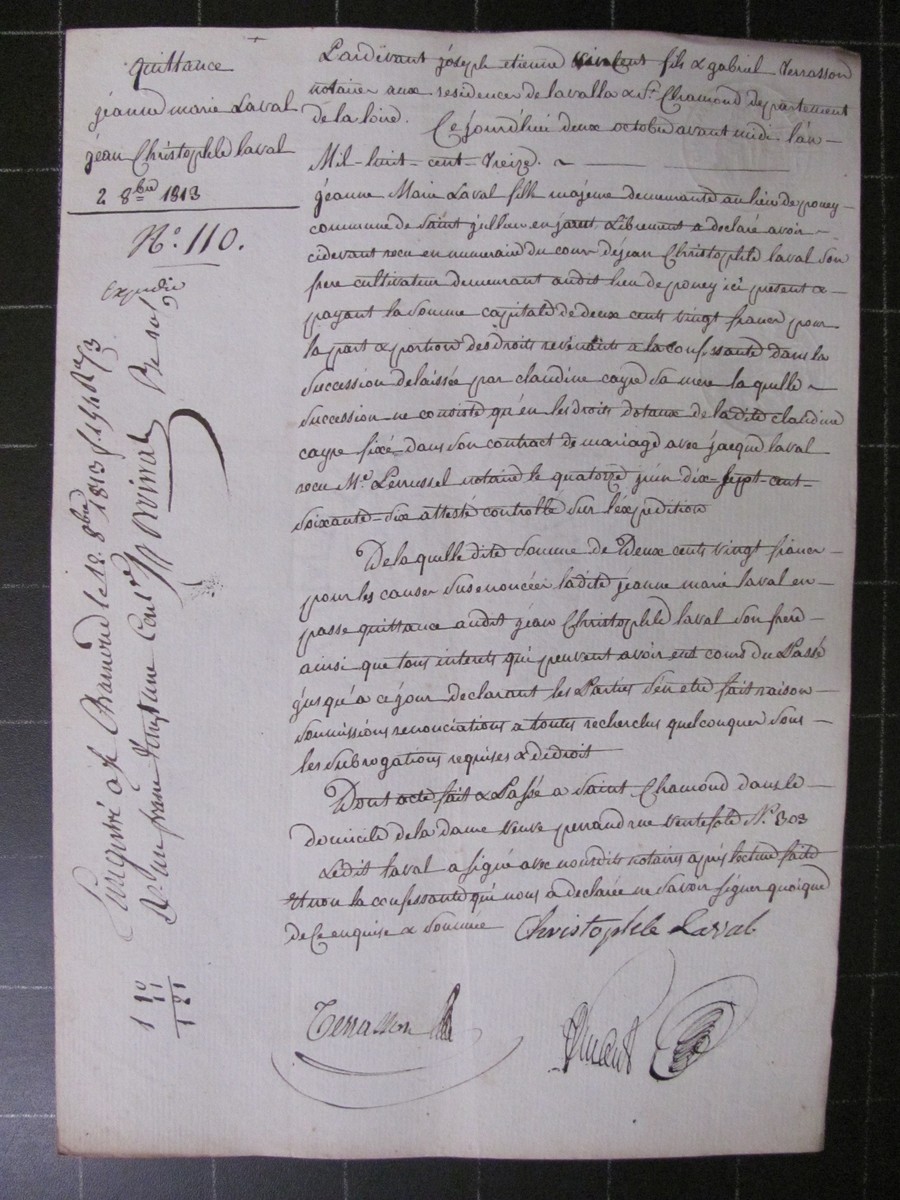 quittance
jéanne marie Laval
jéan Christophle laval
2 8bre 1813
N° 110.
Expédié
Pardevant joseph etienne vincent fils & gabriel Terrasson
notaires aux residences de lavalla & St Chamond departement
de la loire. Ce jourdhui deux octobre avant midi l'an
Mil-huit-cent-Treize.
jéanne Marie Laval fille majeure demeurante au lieu de
commune de Saint jullien en jarret Librement a declaré avoir
cidevant recu en numeraire du cours de jéan Christophle laval son
frere cultivateur demeurant audit lieu de ici présent &
payant la Somme capitale de deux cents vingt francs pour
la part & portion des droits revenants a la confessante dans la
Succession delaissée par claudine cayre Sa mere laquelle
Succession ne consiste qu'en les droits dotaux de la dite claudine
cayre fixés dans son contract de mariage avec jacques laval
recu Me notaire le quatorze juin dix-Sept-cent-
Soixante-Six attesté controllé Sur l'expedition
De laquelle dite Somme de Deux cents vingt francs
pour les causes Susenoncées ladite jéanne marie laval en
passe quittance audit jéan Christophle laval Son frere
ainsi que tous interets qui peuvent avoir eut cours du Passé
jusqu'a ce jour declarant les Parties S'en etre fait raison
Soumissions renonciations a toutes recherches quelconques Sous
les Subrogations requises & de droit
Dont acte fait & Passé a Saint Chamond dans le
domicile de la dame veuve perrand rue N° 303
Ledit laval a signé avec nousdits notaires après lecture faite
Et non la confessante qui nous a declarée ne savoir signer quoique
de ce enquise & Sommée Christophle Laval
Terrasson
Vincent
Enregistré a St Chamond le 12 8bre 1813
Rçu un franc dix centes
1 10
11
1 21